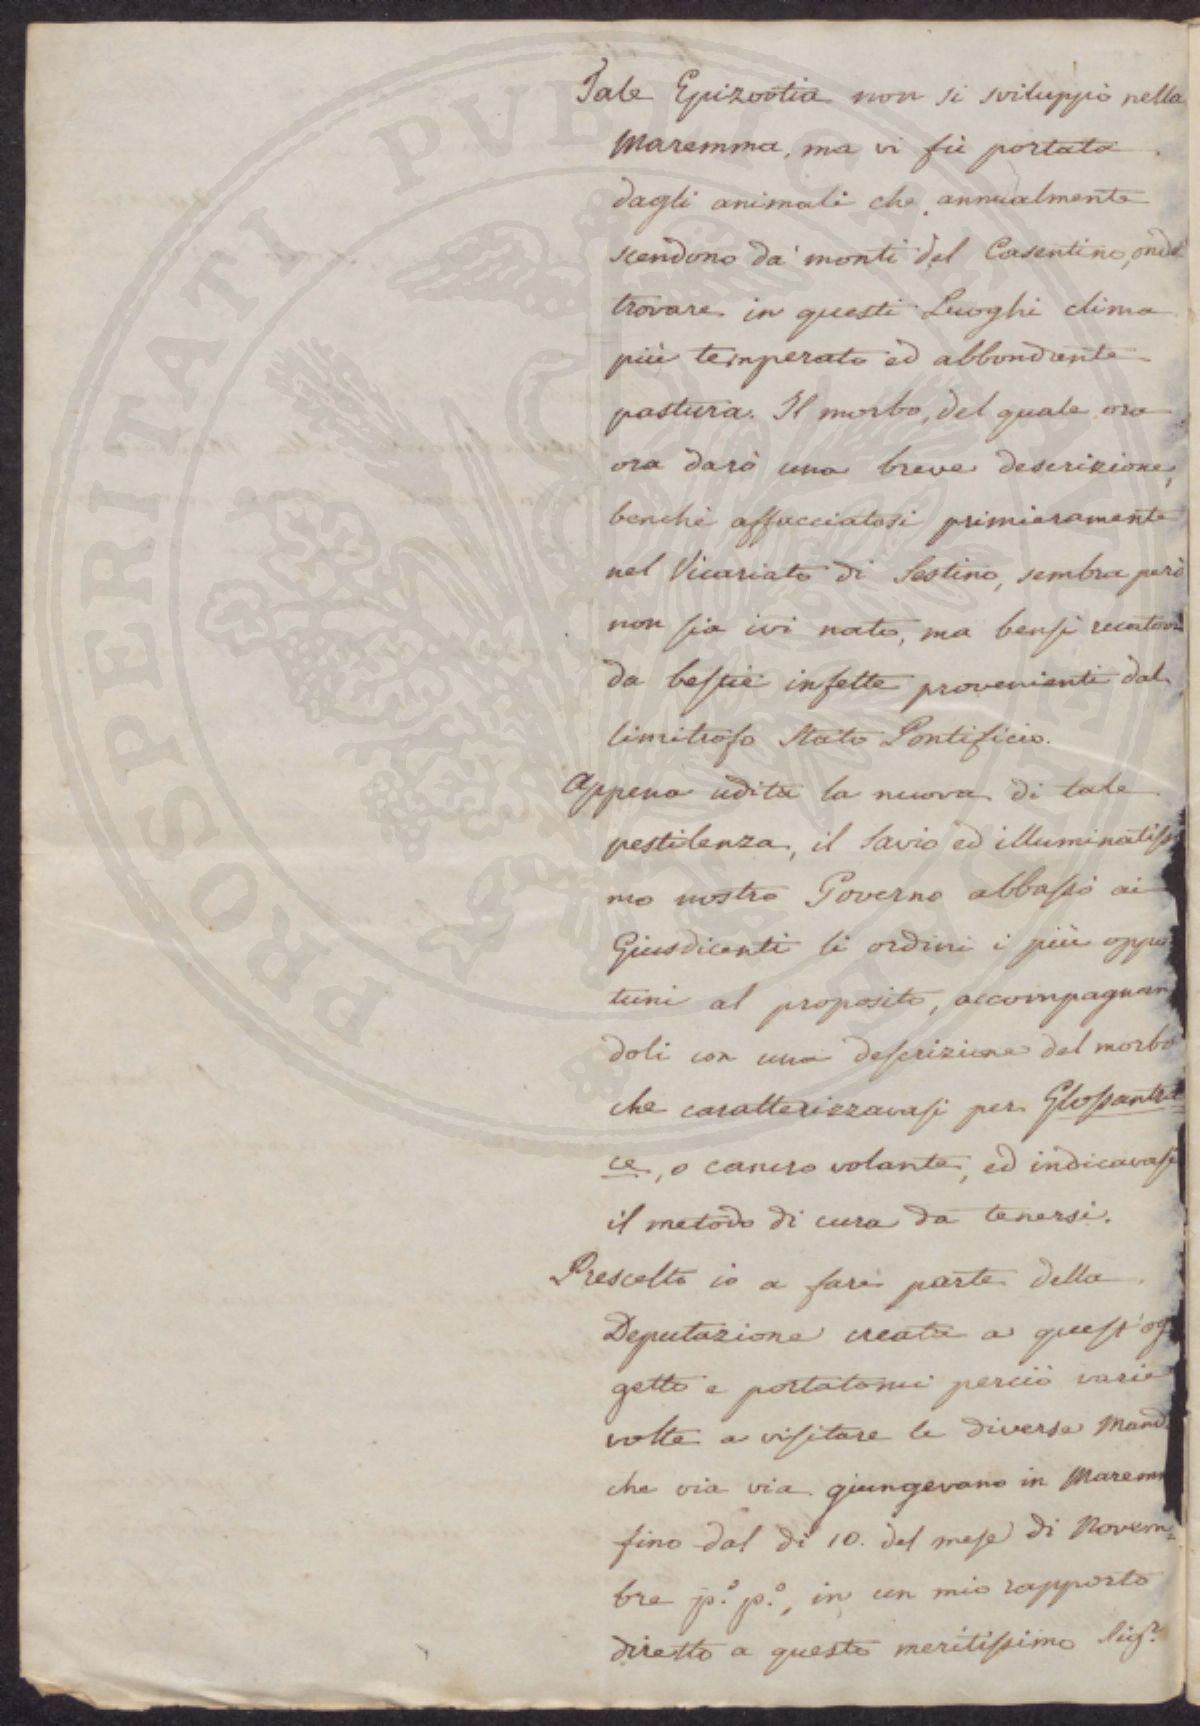 Tale Epizootia non si sviluppò nella
Maremma, ma vi fù portata
dagli animali che annualmente
scendono da' monti del Casentino, onde
trovare in questi Luoghi clima
più temperato ed abbondante
pastura. Il morbo, del quale ora
ora darò una breve descrizione,
benchè affacciatosi primieramente
nel Vicariato di Sestino, sembra però
non sia ivi nato, ma bensì recatovi
da bestie infette provenienti dal
limitrofo Stato Pontificio.
Appena udita la nuova di tale
pestilenza, il Savio ed illuminatiss
mo nostro Governo abbassò ai
Giusdicenti li ordini i più oppor
tuni al proposito, accompagnan
doli con una descrizione del morbo
che caratterizzavasi per Glossantra
ce, o cancro volante, ed indicavasi
il metodo di cura da tenersi.
Prescelto io a fare parte della
Deputazione creata a quest'og
getto e portatomi perciò varie
volte a visitare le diverse Mand
che via via giungevano in Maremm
fino dal dì 10. del mese di Novem
bre p.º p.º, in un mio rapporto
diretto a questo meritissimo Sigr.
PROSPERITATI PVBLICAE AVGENDAE